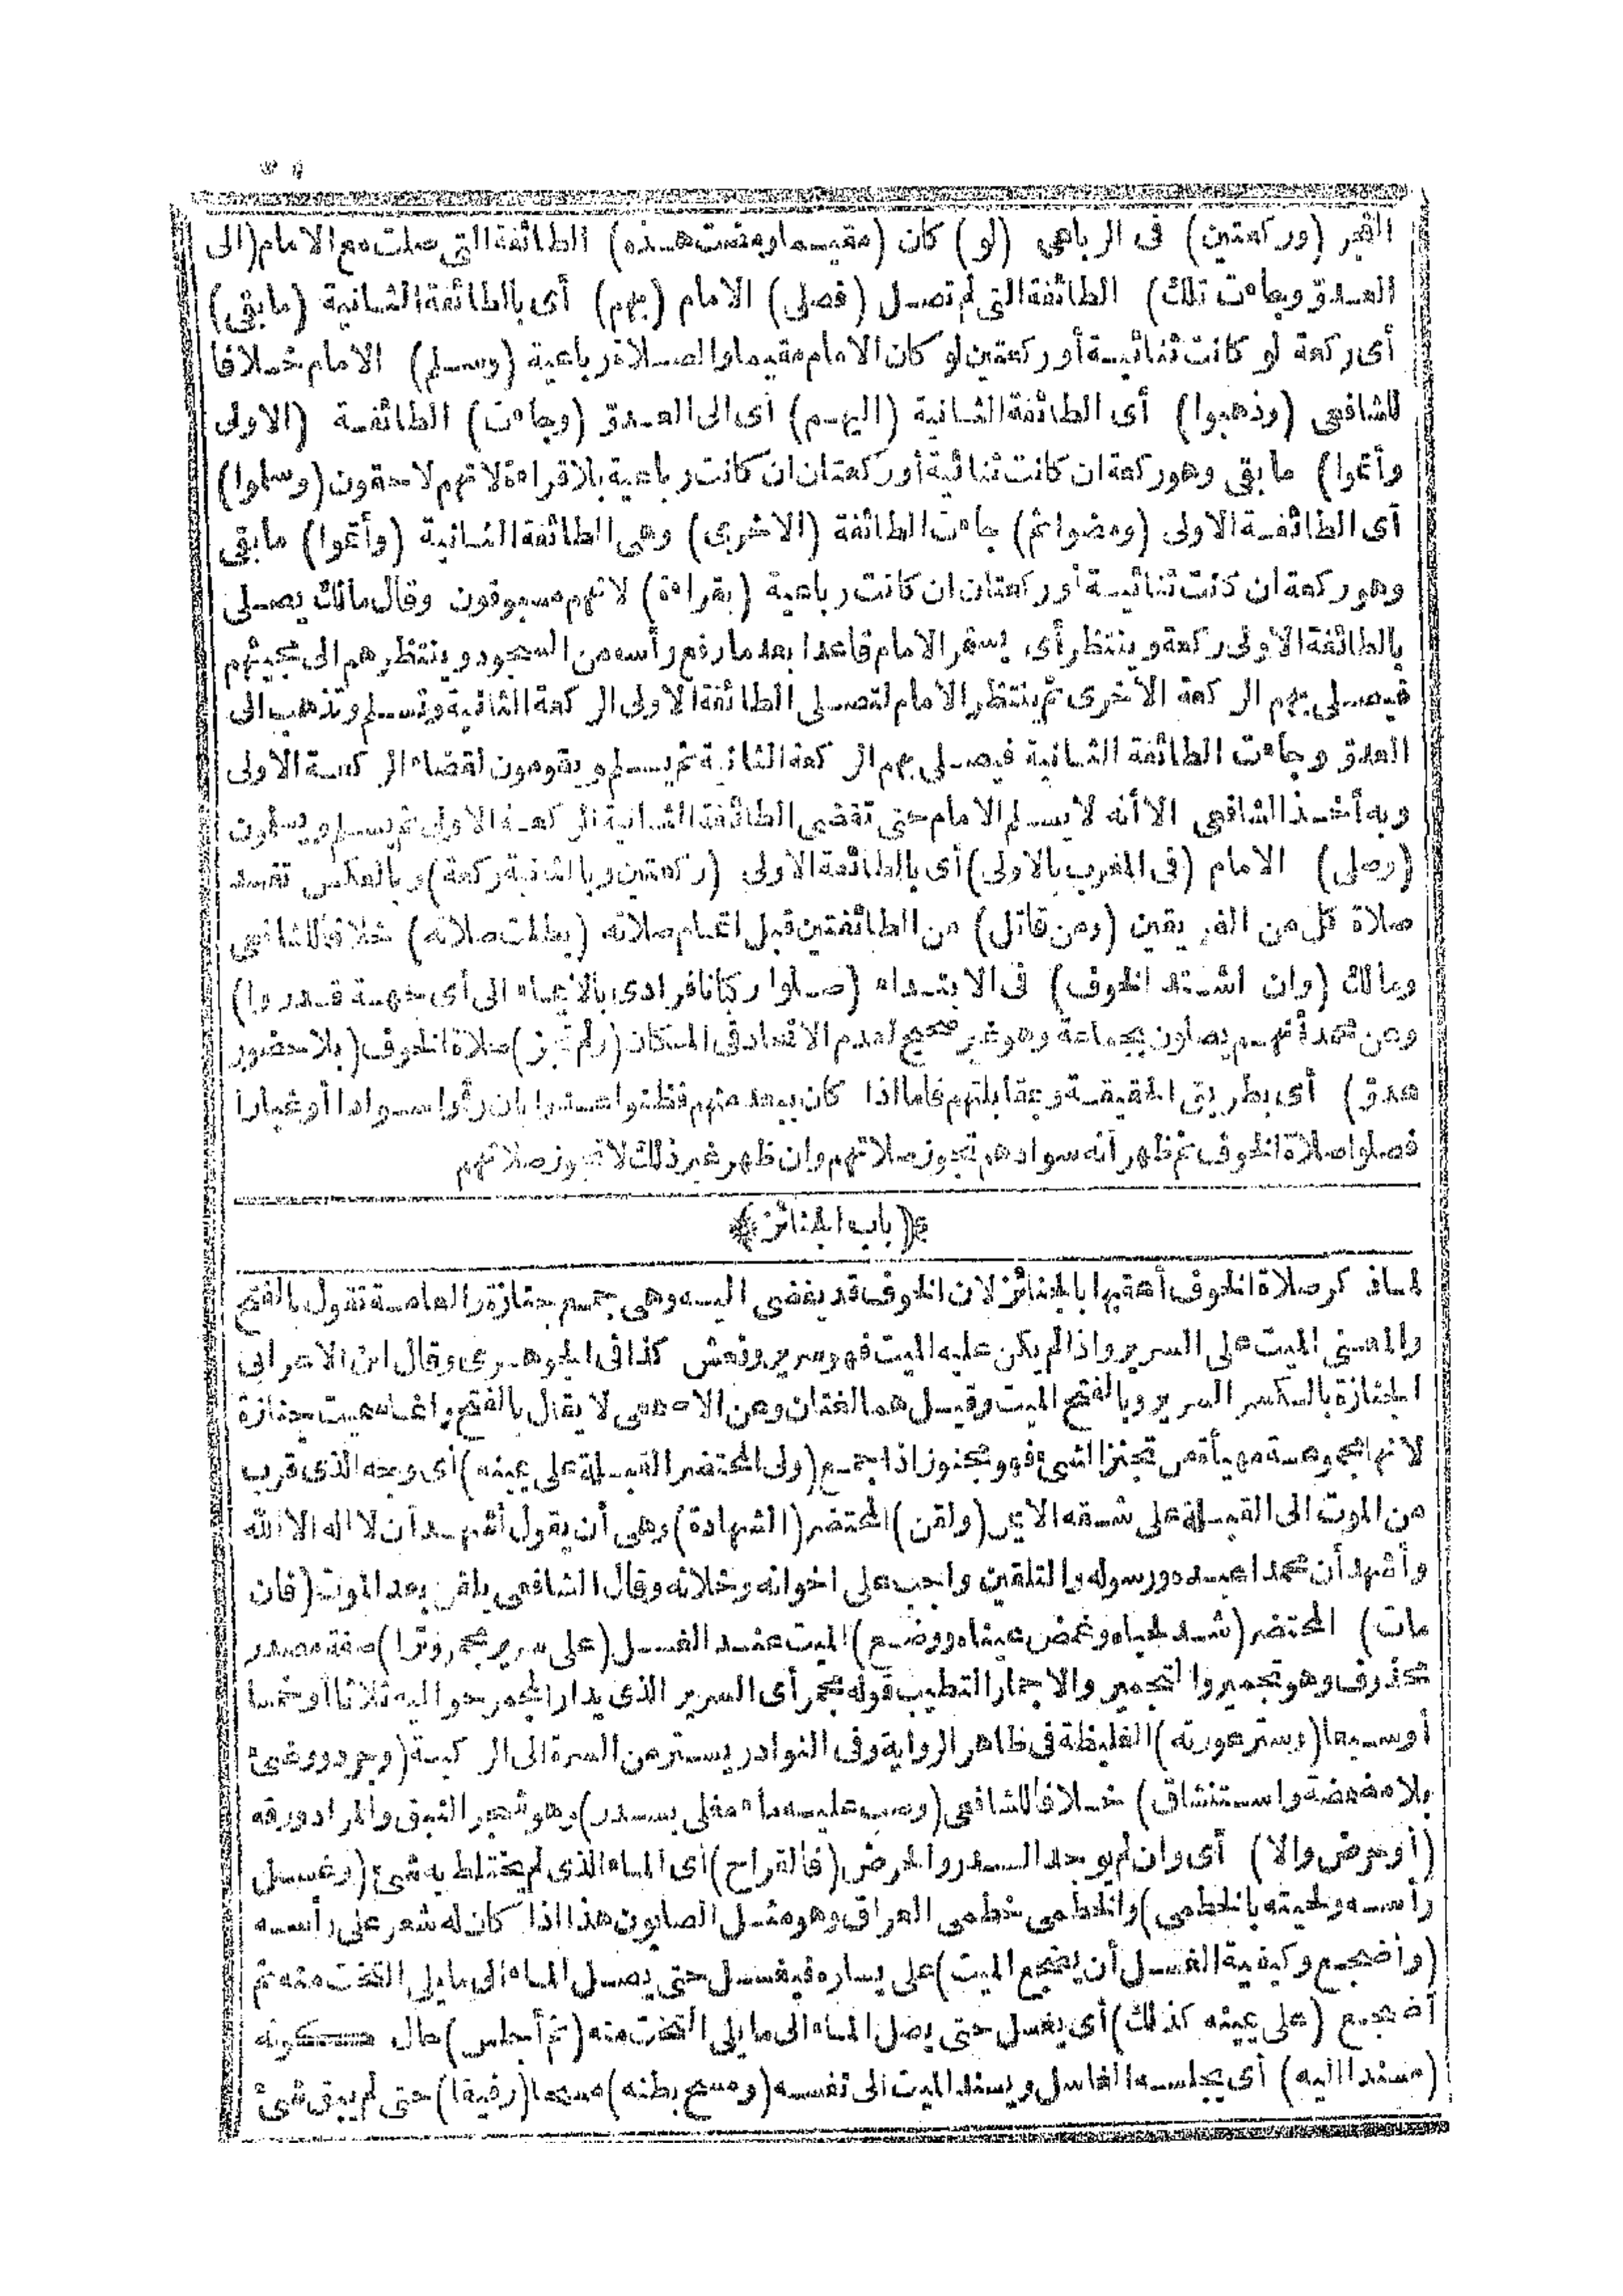 الفجر (وركعتين) فى الرباعى (لو) كان (مقيما ومضت هذه) الطائفة التى صلت مع الامام (الى
العدو وجاءت تلك) الطائفة التى لم تصل (فصلى) الامام (بهم) أى بالطائفة الثانية (ما بقى)
أى ركعة لو كانت ثنائية أو ركعتين لو كان الامام مقيما والصلاة رباعية (وسلم) الامام خلافا
للشافعى (وذهبوا) أى الطائفة الثانية (اليهم) أى الى العدو (وجاءت) الطائفة (الاولى
وأتموا) ما بقى وهو ركعة ان كانت ثنائية أو ركعتان ان كانت رباعية بلا قراءة لانهم لاحقون (وسلموا)
أى الطائفة الاولى (ومضوا ثم) جاءت الطائفة (الاخرى) وهى الطائفة الثانية (وأتموا) ما بقى
وهو ركعة ان كانت ثنائية أو ركعتان ان كانت رباعية (بقراءة) لانهم مسبوقون وقال مالك يصلى
بالطائفة الاولى ركعة وينتظر أى يستمر الامام قاعدا بعد ما رفع رأسه من السجود وينتظرهم الى مجيئهم
فيصلى بهم الركعة الاخرى ثم ينتظر الامام لتصلى الطائفة الاولى الركعة الثانية وتسلم وتذهب الى
العدو وجاءت الطائفة الثانية فيصلى بهم الركعة الثانية ثم يسلم ويقومون لقضاء الركعة الاولى
وبه أخذ الشافعى الا أنه لا يسلم الامام حتى تقضى الطائفة الثانية الركعة الاولى ثم يسلم ويسلمون
(وصلى) الامام (فى المغرب بالاولى) أى بالطائفة الاولى (ركعتين وبالثانية ركعة) وبالعكس تفسد
صلاة كل من الفريقين (ومن قاتل) من الطائفتين قبل اتمام صلاته (بطلت صلاته) خلافا للشافعى
ومالك (وان اشتد الخوف) فى الابتداء (صلوا ركبانا فرادى بالايماء الى أى جهة قدروا)
وعن محمد أنهم يصلون بجماعة وهو غير صحيح لعدم الاتحاد فى المكان (ولم تجز) صلاة الخوف (بلا حضور
عدو) أى بطريق الحقيقة وبمقابلتهم فاما اذا كان ببعد منهم فظنوا عدوا بان رأوا سوادا أو غبارا
فصلوا صلاة الخوف ثم ظهر أنه سوادهم تجوز صلاتهم وان ظهر غير ذلك لا تجوز صلاتهم
﴿باب الجنائز﴾
لما ذكر صلاة الخوف أعقبها بالجنائز لان الخوف قد يفضى اليه وهى جمع جنازة والعامة تقول بالفتح
والمعنى الميت على السرير واذا لم يكن عليه الميت فهو سرير ونعش كذا فى الجوهرى وقال ابن الاعرابى
الجنازة بالكسر السرير وبالفتح الميت وقيل هما لغتان وعن الاصمعى لا يقال بالفتح وانما سميت جنازة
لانها مجموعة مهيأة من تجنز الشئ فهو مجنوز اذا جمع (ولى المحتضر القبلة على يمينه) أى وجه الذى قرب
من الموت الى القبلة على شقه الايمن (ولقن) المحتضر (الشهادة) وهى أن يقول أشهد أن لا اله الا الله
وأشهد أن محمدا عبده ورسوله والتلقين واجب على اخوانه وخلانه وقال الشافعى يلقن بعد الموت (فان
مات) المحتضر (شد لحياه وغمض عيناه ووضع) الميت عند الغسل (على سرير مجمر وترا) صفة مصدر
محذوف وهو تجمير والتجمير والاجمار التطييب قوله مجمر أى السرير الذى يدار المجمر حواليه ثلاثا أو خمسا
أو سبعا (وستر عورته) الغليظة فى ظاهر الرواية وفى النوادر يستر من السرة الى الركبة (وجرد ووضئ
بلا مضمضة واستنشاق) خلافا للشافعى (وصب عليه ماء مغلى بسدر) وهو شجر النبق والمراد ورقه
(أو حرض والا) أى وان لم يوجد السدر والحرض (فالقراح) أى الماء الذى لم يختلط به شئ (وغسل
رأسه ولحيته بالخطمى) والخطمى خطمى العراق وهو مثل الصابون هذا اذا كان له شعر على رأسه
(وأضجع وكيفية الغسل أن يضجع الميت) على يساره فيغسل حتى يصل الماء الى ما يلى التخت منه ثم
أضجع (على يمينه كذلك) أى يغسل حتى يصل الماء الى ما يلى التخت منه (ثم أجلس) حال كونه
(مسندا اليه) أى يجلسه الغاسل ويسند الميت الى نفسه (ومسح بطنه) مسحا (رفيقا) حتى لم يبق شئ